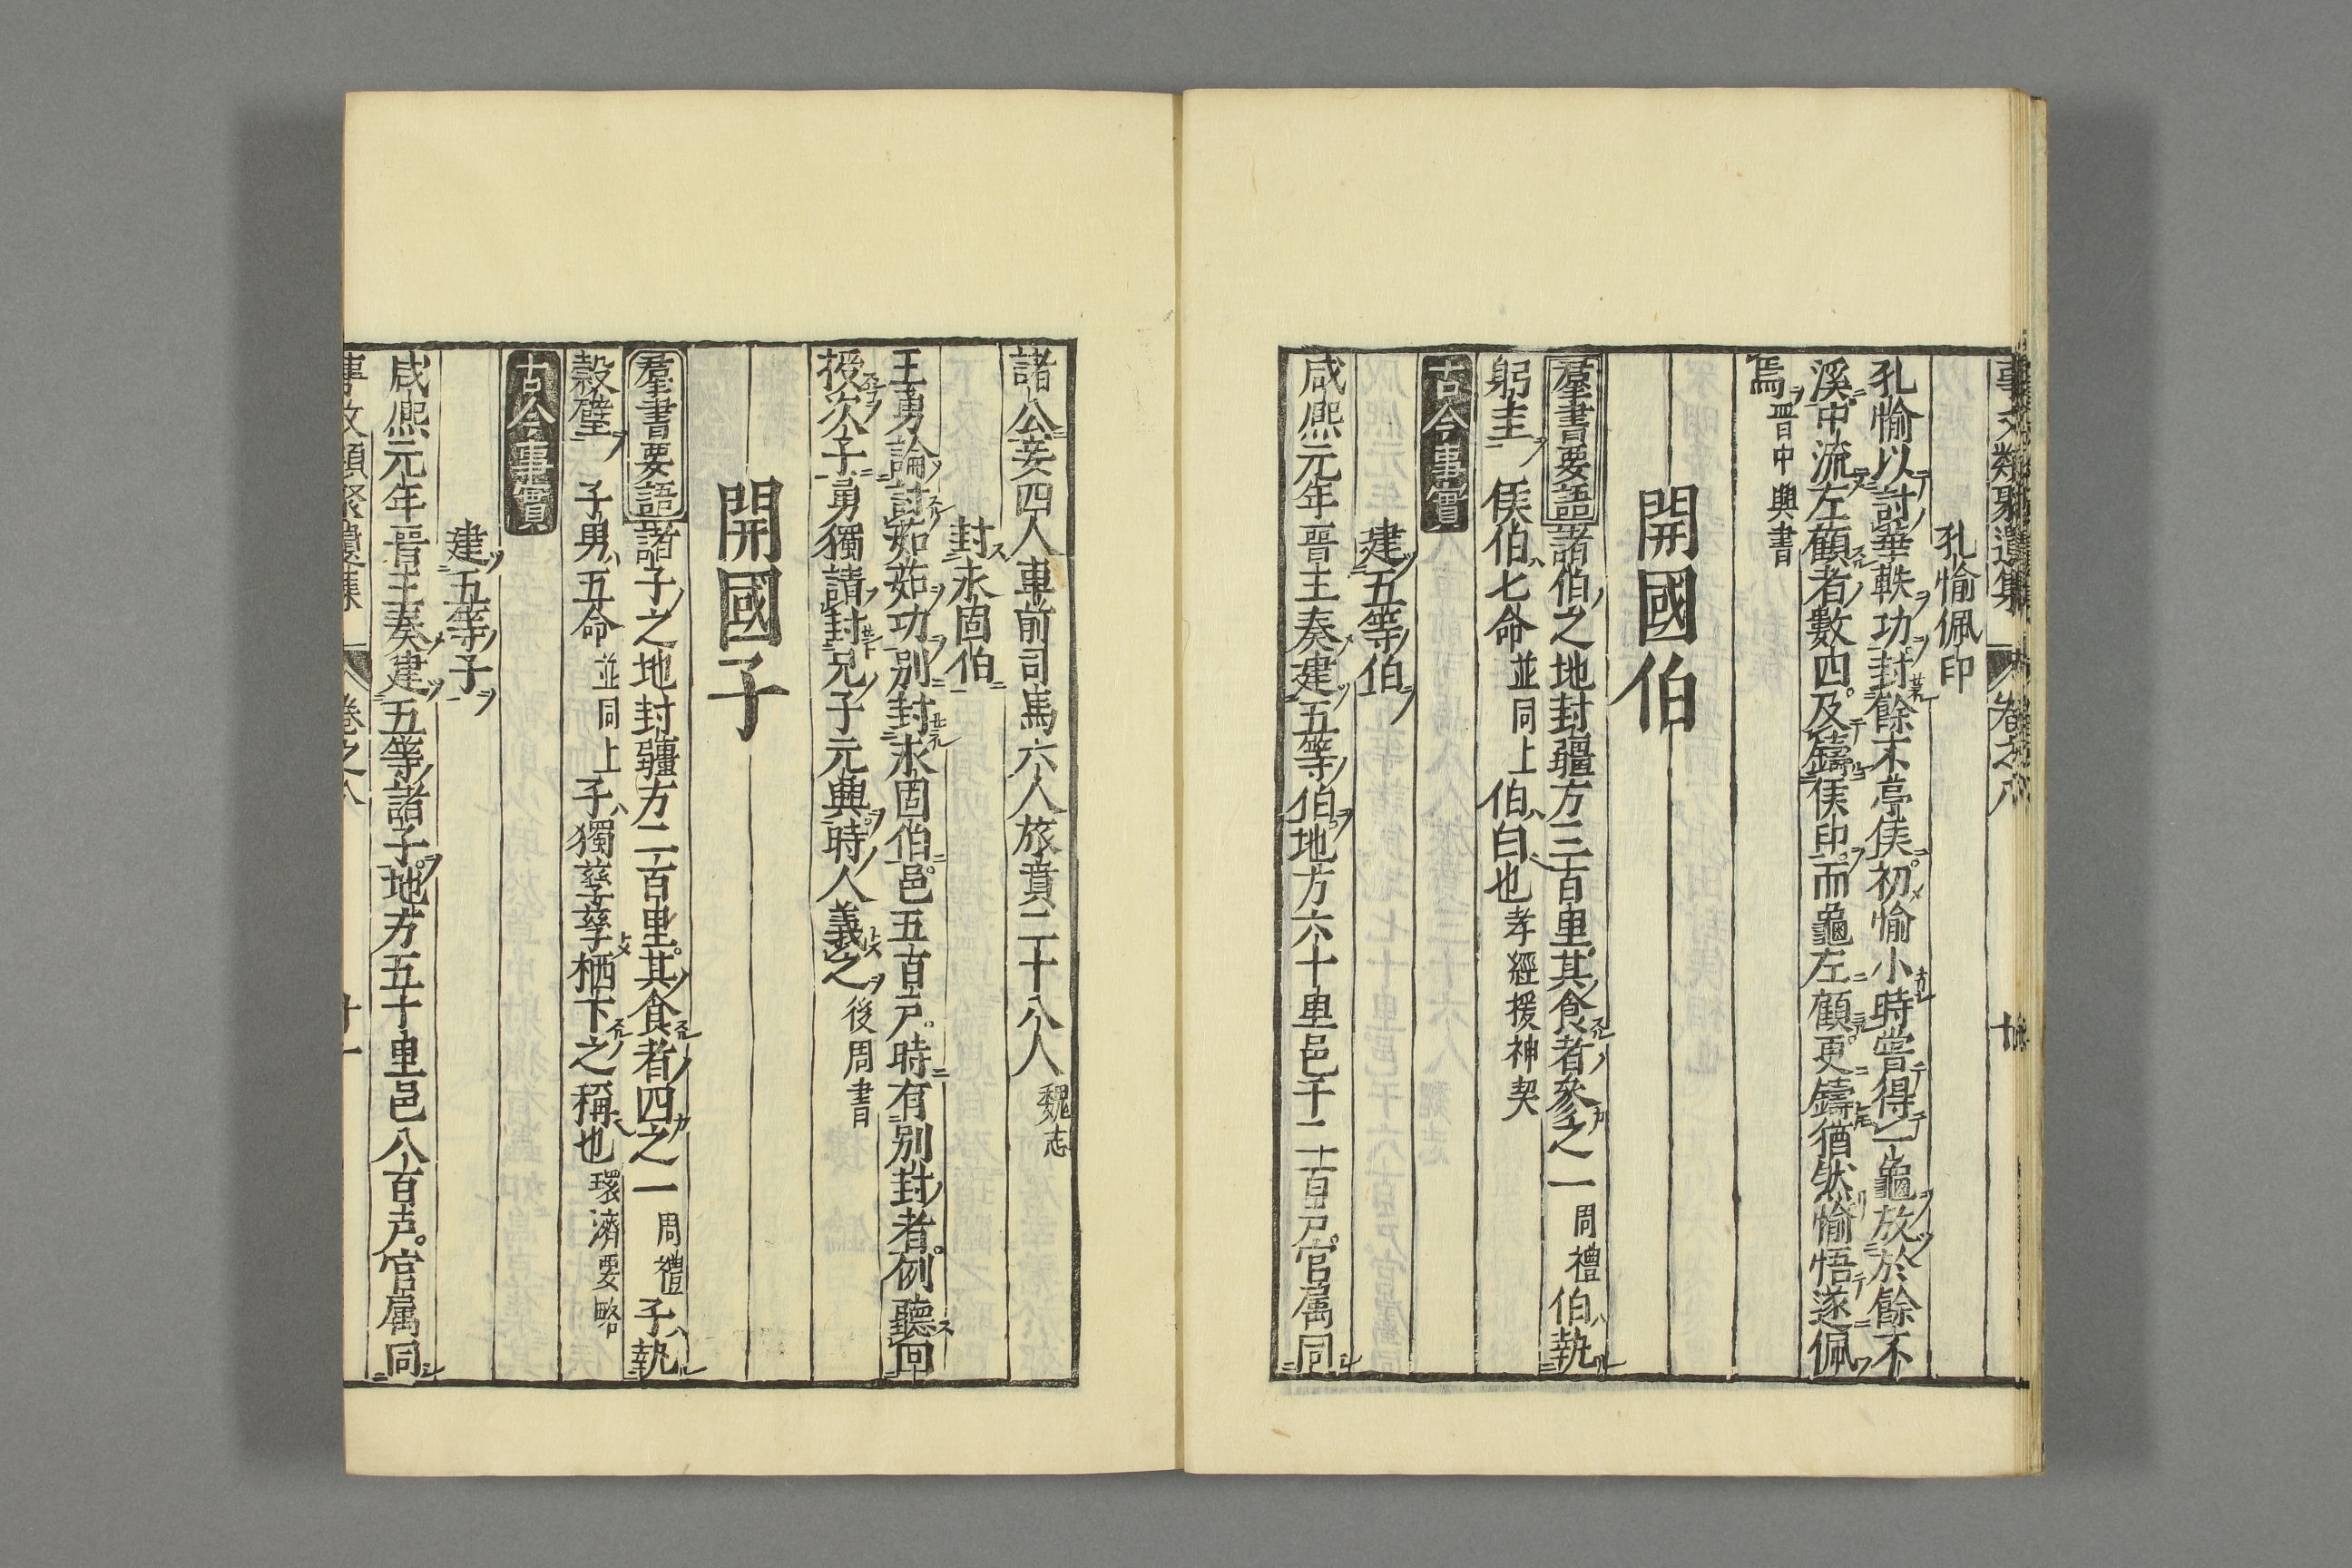 事文類聚遺集 卷之八 十
孔愉佩印
孔愉以討華軼功封餘不亭侯初愉小時嘗得一龜放於餘不
溪中流左顧者數四及鑄侯印而龜左顧更鑄猶然愉悟遂佩
焉晉中興書
開國伯
羣書要語諸伯之地封疆方三百里其食者參之一周禮伯執
躬圭 侯伯七命並同上伯白也孝經援神契
古今事實
建五等伯
咸熈元年晉王奏建五等伯地方六十里邑千二百戸官属同
諸公妾四人車前司馬六人旅賁二十八人魏志
封永固伯
王勇論討茹茹功別封永固伯邑五百戸時有別封者例聽回
授次子勇獨請封兄子元興時人義之後周書
開國子
羣書要語諸子之地封疆方二百里其食者四之一周禮子執
穀璧 子男五命並同上子獨孳孳栖下之稱也環濟要略
古今事實
建五等子
咸熈元年晉王奏建五等諸子地方五十里邑八百戸官属同
事文類聚遺集 卷之八 十一